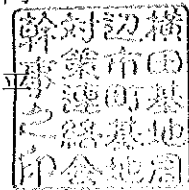 横田基地周
辺市町基地
対策連絡会
幹事之印
立